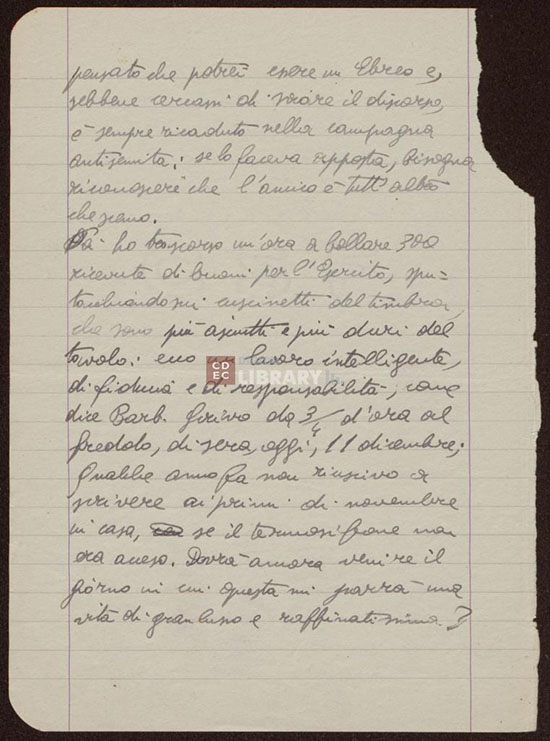 pensato che potrei essere un Ebreo e,
sebbene cercassi di sviare il discorso,
è sempre ricaduto nella campagna
antisemita: se lo faceva apposta, bisogna
riconoscere che l'amico è tutt'altro
che scemo.
ho trascorso un'ora a bollare 300
ricevute di buoni per l'Esercito, spu-
tacchiando sui cuscinetti del timbro,
che sono più asciutti e più duri del
tavolo: ecco un lavoro intelligente,
di fiducia e di responsabilità, come
dice Barb. Scrivo da 3/4 d'ora al
freddo, di sera, oggi, 11 dicembre;
Qualche anno fa non riuscivo a
scrivere ai primi di novembre
in casa, se il termosifone non
era acceso. Dovrà ancora venire il
giorno in cui questa mi parrà una
vita di gran lusso e raffinatissima?
CDEC LIBRARY